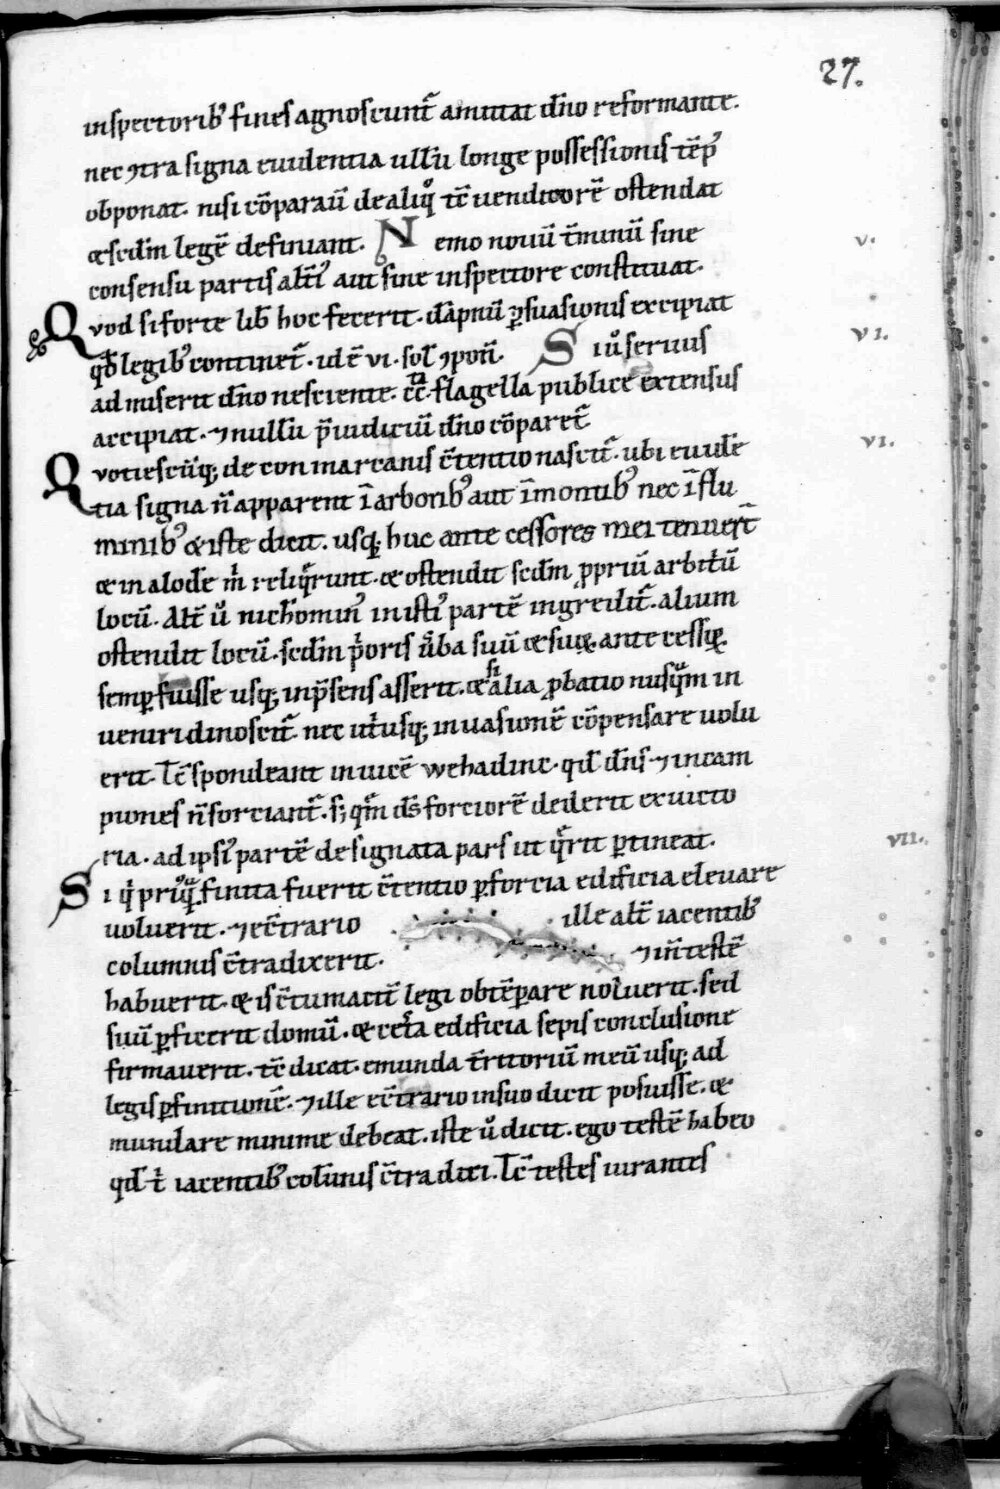 27.
inspectorib᷒ fines agnoscunt᷑ amittat dn̄o reformante.
nec ꝯtra signa euidentia ullū longe possessionis tēp᷒
obponat. nisi cōparaū de aliqͦ tc̄ uenditorē ostendat
& scdm̄ legē definiant. Nemo nouū t̄minū sine
consensu partis alt̄i᷒ aut sine inspectore constituat.
Quod si forte lib̄ hoc fecerit. dāpnū ꝑsuasionis excipiat
qd̄ legib᷒ continet᷑. id ē vi. sol̄ ꝯpoñ. Si ū seruus
admiserit dn̄o nesciente. cc̄. flagella publice extensus
accipiat. ⁊ nullū p̄iudiciū dn̄o cōparet᷑
Quotiescūq; de conmarcanis c̄tentio nascit᷑. ubi euidē
tia signa n̄ apparent ī arborib᷒ aut ī montib᷒ nec ī flu
minib᷒ & iste dicit. usq; huc antecessores mei tenuer̄t
& in alode m̄ reliq̄runt. & ostendit scdm̄ ꝓpriū arbit̄ū
locū. Alt̄ ū nichomin᷒ in isti᷒ partē ingredit᷑. alium
ostendit locū. scdm̄ p̄oris ūba suū & suoꝝ antecessoꝝ
semꝑ fuisse usq; in p̄sens asserit. & si alia ꝓbatio nusqͣm in
ueniri dinoscit᷑. nec ut̄usq; inuasionē cōpensare uolu
erit. Tc̄ spondeant inuicē wehadinc. qd̄ dn̄s ⁊ in cam
piones n̄ sorciant᷑. s; qm̄ ds̄ forciorē dederit ex uicto
ria. ad ipsi᷒ partē designata pars ut q̄rit ꝑtineat.
Si q̄ pri᷒qͣ finita fuerit c̄tentio ꝑ forcia edificia eleuare
uoluerit. ⁊ ec̄trario ille alt̄ iacentib᷒
columnis c̄tradixerit. ⁊ in̄ testē
habuerit. & is c̄tumacit᷑ legi obtēꝑare noluerit. sed
suū ꝑficerit domū. & cet̄a edificia sepis conclusione
firmauerit. tc̄ dicat. emunda t̄ritoriū meū usq; ad
legis ꝑfinitionē. ⁊ ille ec̄trario in suo dicit posuisse. &
mundare minime debeat. iste ū dicit. ego testē habeo
qd̄ t̄ iacentib᷒ colūnis c̄tradixi. Tc̄ testes iurantes
v.
vi.
vi.
vii.